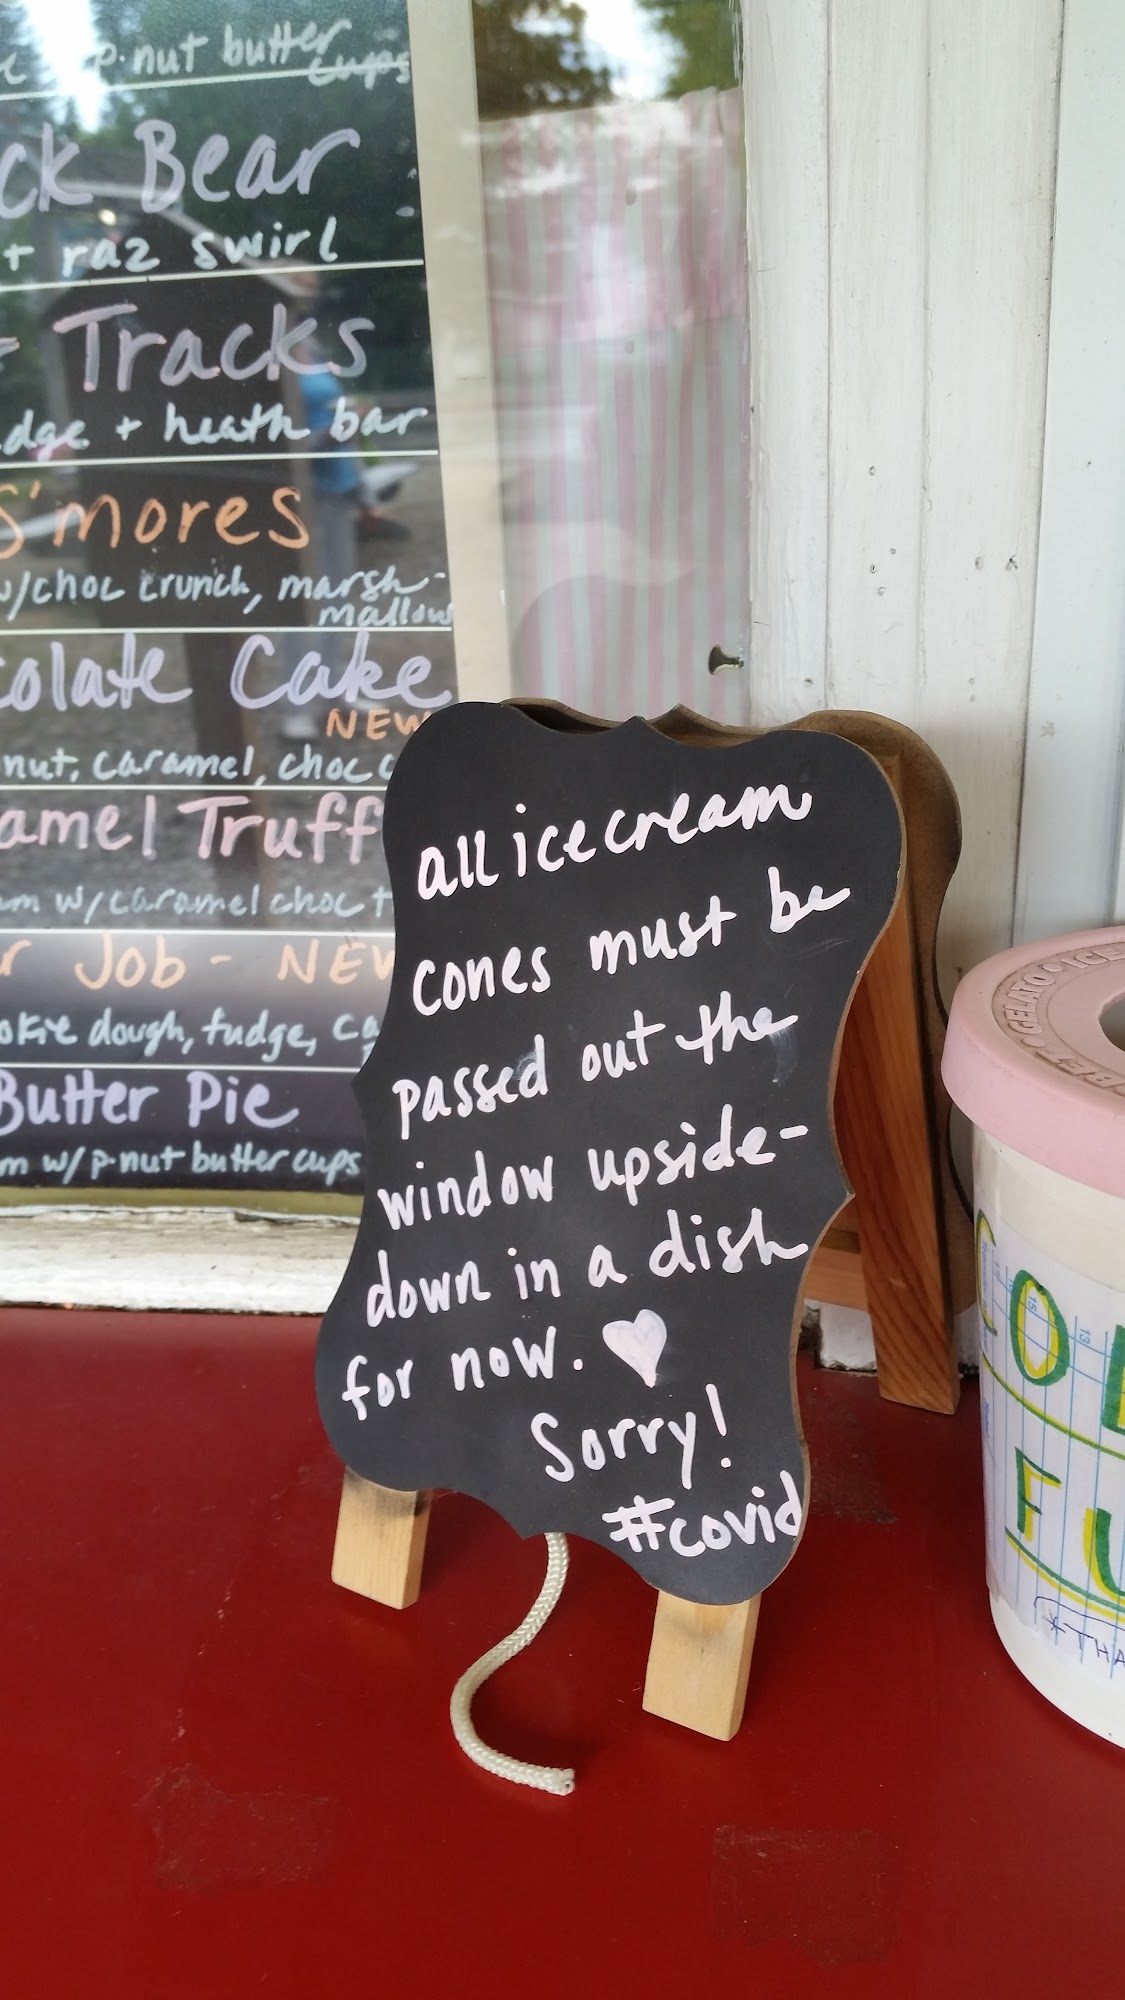 p.nut butter
cups
ck Bear
+ raz swirl
Tracks
dge + heath bar
S'mores
w/choc crunch, marsh-
mallow
colate Cake
NEW
nut, caramel, choc c
amel Truff
am w/caramel choc +
r Job - NEW
okie dough, fudge, ca
Butter Pie
m w/p-nut butter cups
all ice cream
cones must be
passed out the
window upside-
down in a dish
for now. ♥
Sorry!
#covid
GELATO • ICE
CO
FU
*THA